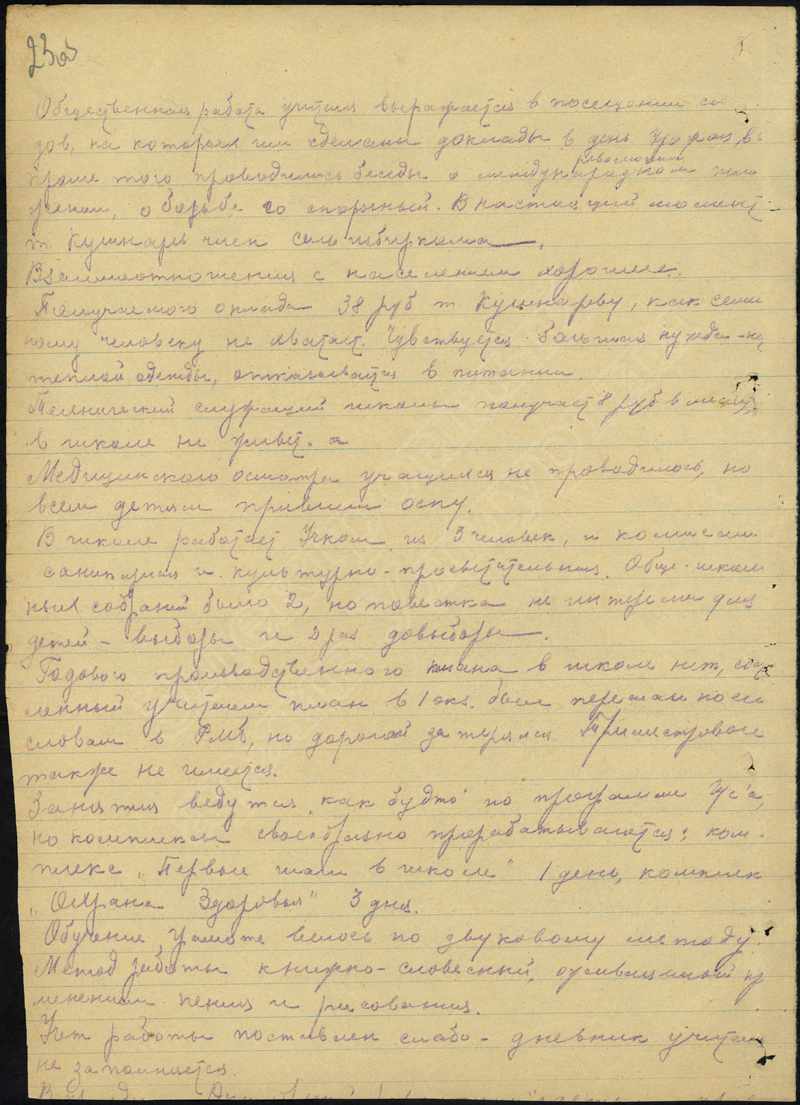 23об
Общественная работа учителя выражается в посещении схо
дов, на которых им сделаны доклады в день Урожая,
кроме того проводились беседы о международном
революцион
о борьбе со спорыньей. В настоящий момент
т. Кушнарь член сельизбиркома.
Взаимоотношения с населением хорошие.
Получаемого оклада 38 руб т. Кушнареву, как семей
ному человеку не хватает. Чувствуется большая нужда - не
теплой одежды, отказывается в питании.
Технический служащий школы получает 8 руб в месяц,
в школе не живет.
Медицинского осмотра учащихся не проводилось, но
всем детям привили оспу.
В школе работает Учком из 5 человек, и комиссии
санитарная и культурно-просветительная. Обще-школь
ных собраний было 2, но повестка не интересна для
детей - выборы и 2 раз довыборы.
Годового производственного плана в школе нет, сос
ленный учителем план в 1 окт. был переслан по его
словам в РМБ, но дорогой затерялся. Триместровые
также не имеется.
Занятия ведутся как будто по программе Гус'а,
но комплексы своеобразно прорабатываются: ком-
плекс „Первые шаги в школе" 1 день, комплек
„Охрана Здоровья" 3 дня.
Обучение грамоте велось по звуковому методу.
Метод работы книжно-словесный, оживляемый
менением пения и рисования.
Учет работы поставлен слабо - дневник учителя
не заполняется.